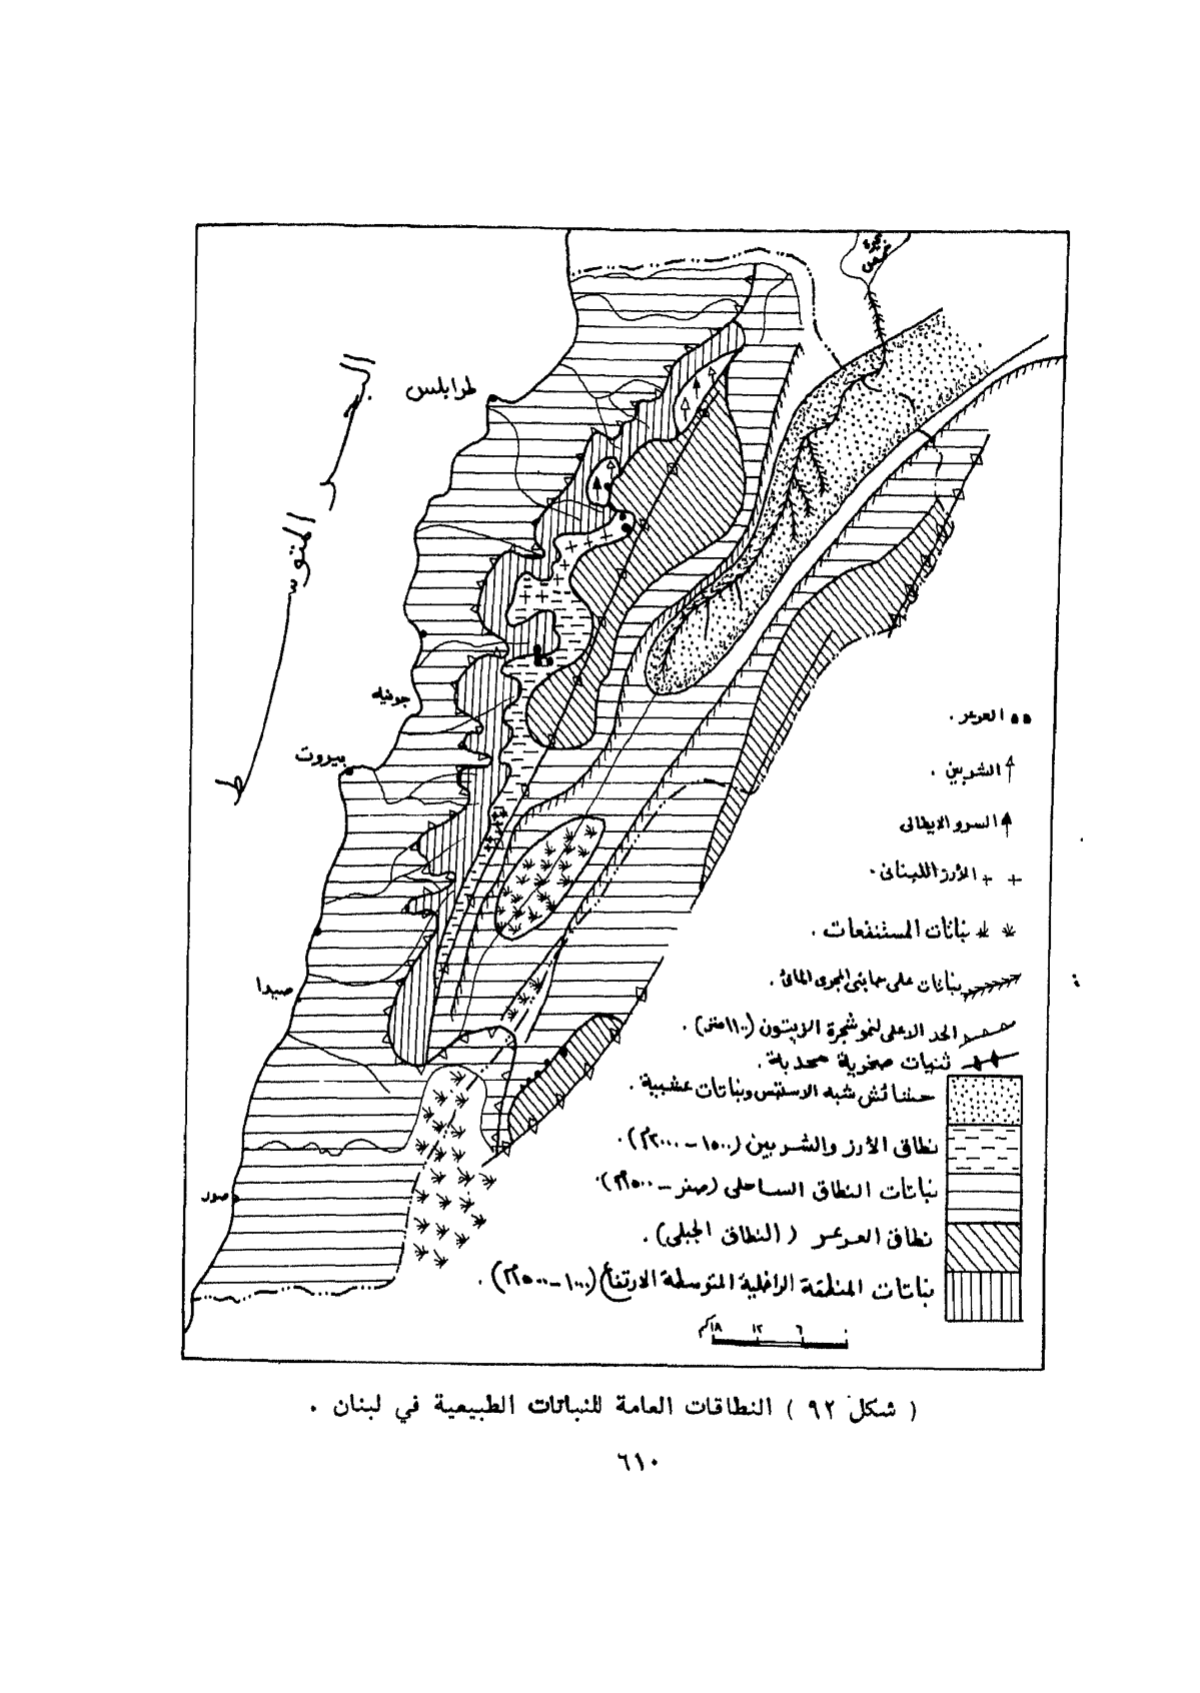 بحيرة
حمص
البحر
المتوسط
طرابلس
جونيه
بيروت
صيدا
صور
العرعر .
الشربين .
السرو الايطالى
الأرز اللبنانى .
نباتات المستنقعات .
نباتات على جانبى المجرى المائى .
الحد الاعلى لنمو شجرة الزيتون (١١٠٠ متر) .
ثنيات صخرية محدبة .
حشائش شبه الاستبس ونباتات عشبية .
نطاق الأرز والشربين (١٥٠٠ - ٢٠٠٠م) .
نباتات النطاق الساحلى (صفر - ٥٠٠م) .
نطاق العرعر ( النطاق الجبلى) .
نباتات المنطقة الداخلية المتوسطة الارتفاع (١٠٠٠ - ١٥٠٠م) .
٠ ٦ ١٢ ١٨كم
( شكل ٩٢ ) النطاقات العامة للنباتات الطبيعية في لبنان .
٦١٠